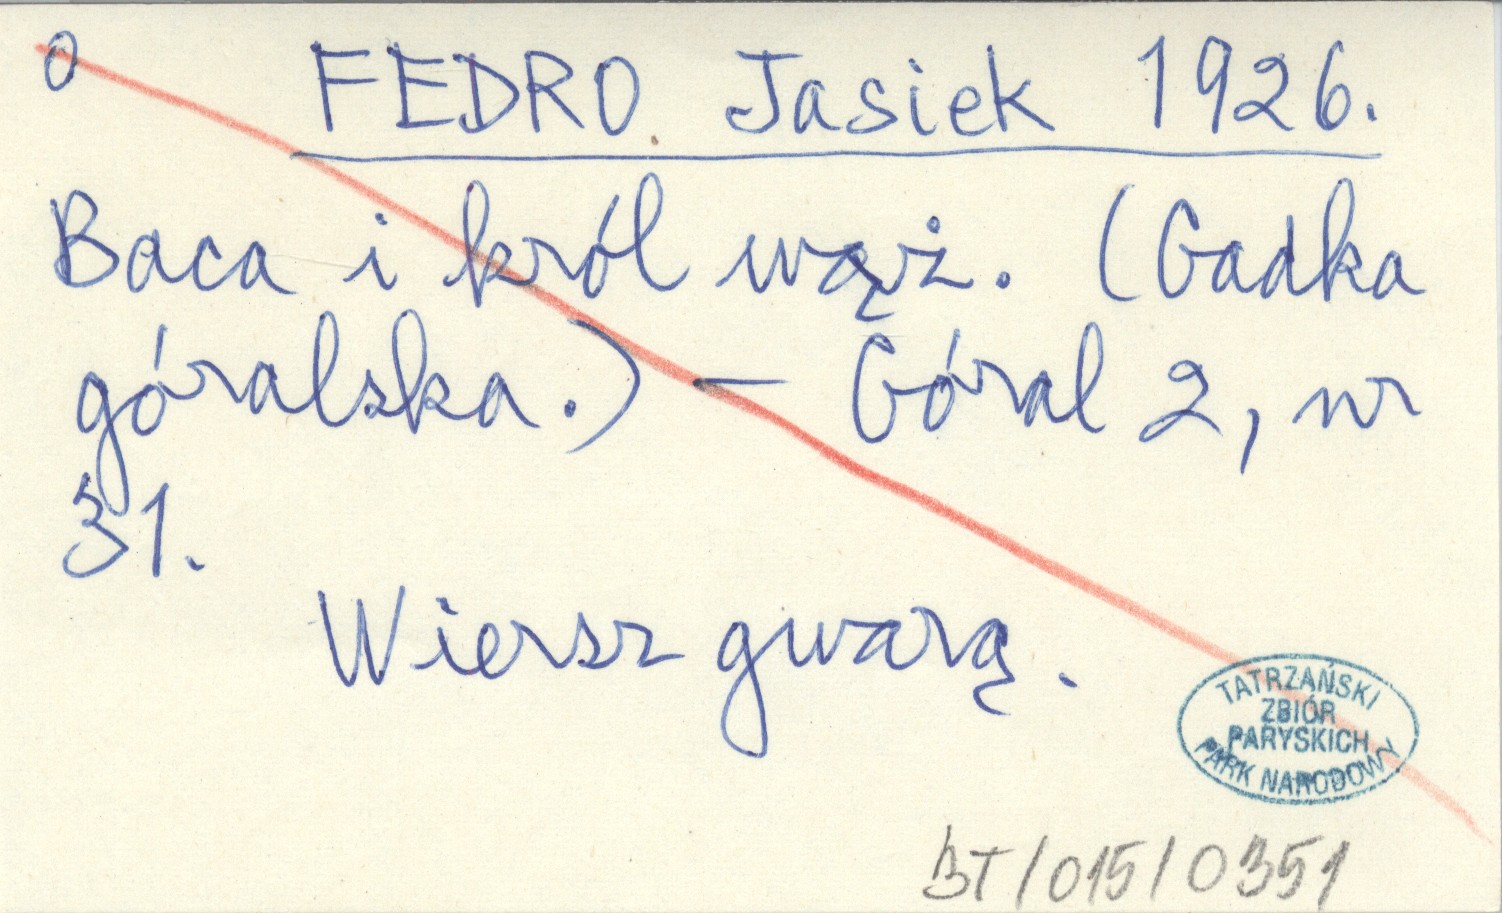 0 FEDRO Jasiek 1926.
Baca i król wąż. (Gadka
góralska.) — Góral 2, nr
31.
Wiersz gwarą.
TATRZAŃSKI
ZBIÓR
PARYSKICH
PARK NARODOWY
BT/015/0351